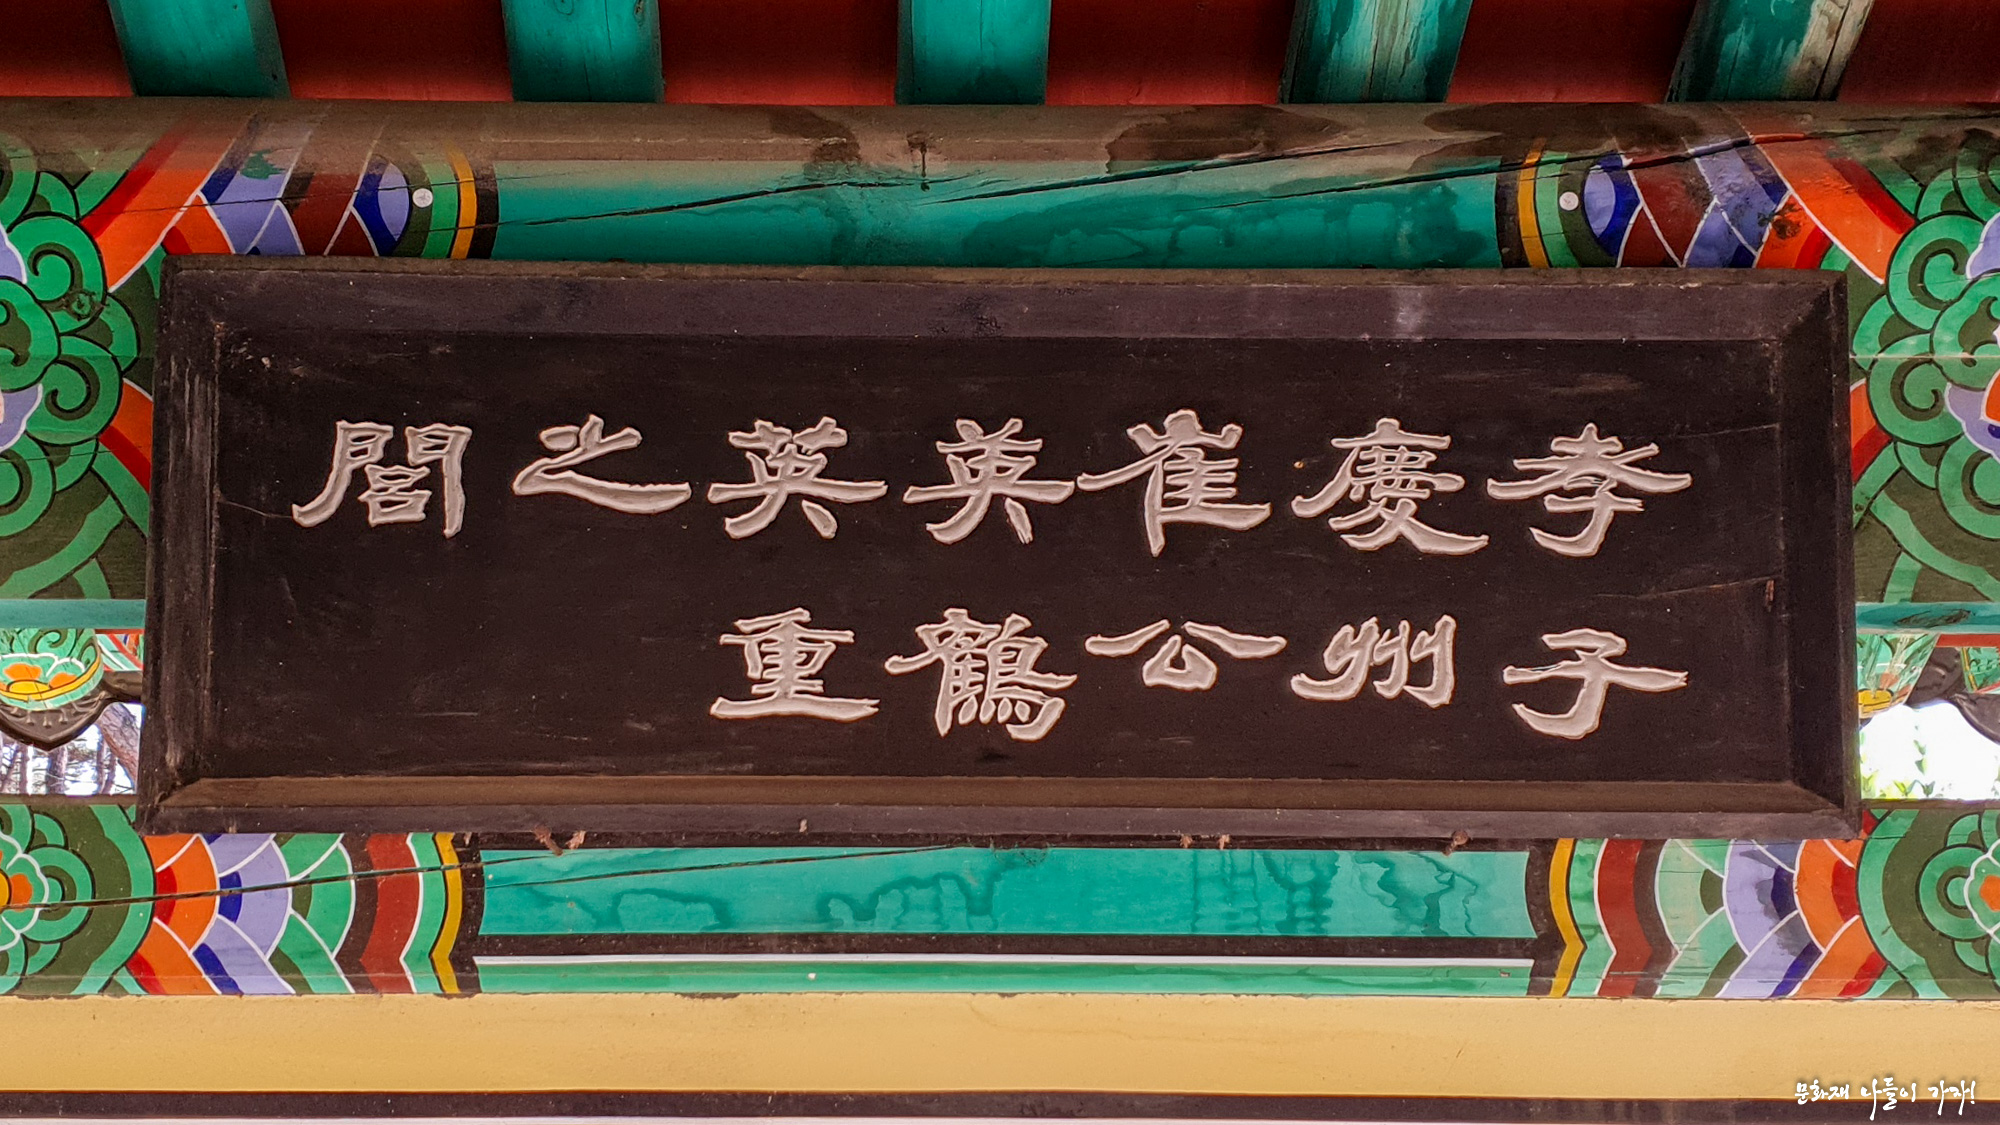 孝子
慶州
崔公
英鶴
英重
之
閣
문화재 나들이 가자!